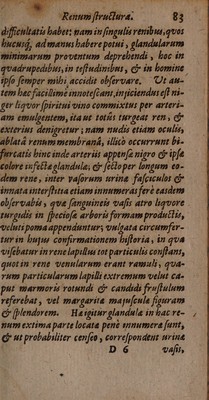 Renum structura. 83
difficultatis habet; nam in singulis renibus, quos
hucusq; ad manus habere potui, glandularum
minimarum proventum deprehendi, hoc in
quadrupedibus, in testudinibus, & in homine
ipso semper mihi accidit observare. Ut au-
tem hæ facilimè innotescant, injiciendus est ni-
ger liquor spiritui vino commixtus per arteri-
am emulgentem, ita ut totus turgeat ren, &
exterius denigretur; nam nudis etiam oculis,
ablatâ renum membranâ, illicò occurrunt bi-
furcatis hinc inde arteriis appensæ nigro & ipsæ
colore infectæ glandulæ; & secto per longum eo-
dem rene, inter vasorum urinæ fasciculos &
innata interstitia etiam innumeras ferè easdem
observabis, quæ sanguineis vasis atro liquore
turgidis in speciosæ arboris formam productis,
veluti poma appenduntur; vulgata circumfer-
tur in hujus confirmationem historia, in qua
visebatur in rene lapillus tot particulis constans,
quot in rene venularum erant ramuli, qua-
rum particularum lapilli extremum velut ca-
put marmoris rotundi & candidi frustulum
referebat, vel margaritæ majusculæ figuram
& splendorem. Hæ igitur glandulæ in hac re-
num extima parte locatæ penè innumeræ sunt,
& ut probabiliter censeo, correspondent urinæ
D 6 vasis,